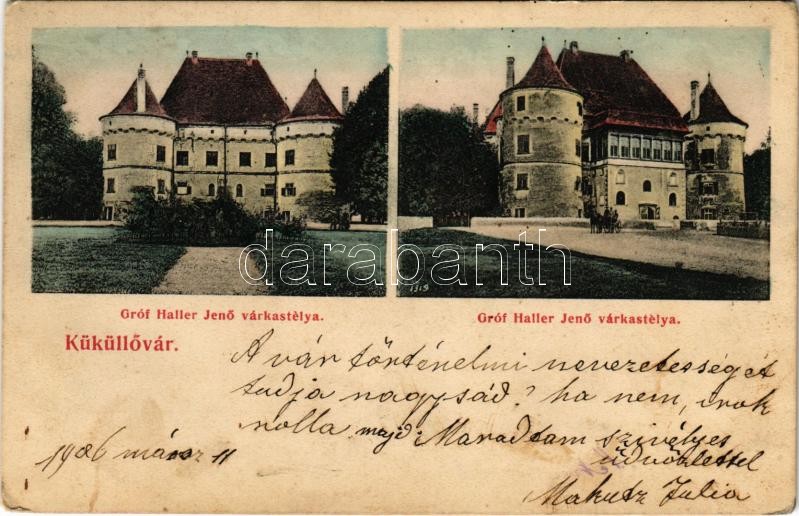 darabanth
1319
Gróf Haller Jenő várkastèlya.
Gróf Haller Jenő várkastèlya.
Küküllővár.
A vár történelmi nevezetességét
tudja nagysád? ha nem, irok
rolla majd Maradtam szivélyes
üdvözlettel
1906 március 11
Makutz Julia